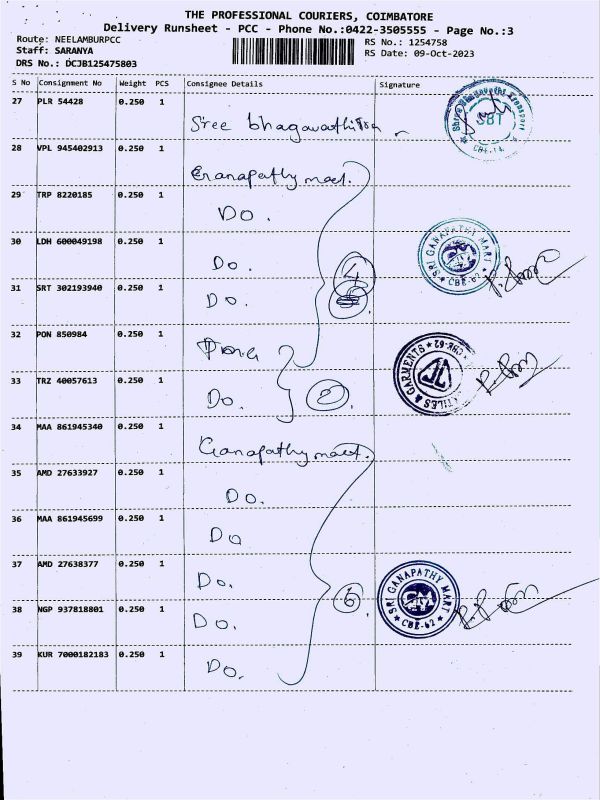 THE PROFESSIONAL COURIERS, COIMBATORE
Delivery Runsheet - PCC - Phone No.:0422-3505555 - Page No.:3
Route: NEELAMBURPCC
RS No.: 1254758
Staff: SARANYA
RS Date: 09-Oct-2023
DRS No.: DCJB125475803
S No Consignment No Weight PCS Consignee Details Signature
27 PLR 54428 0.250 1
Sree bhagavathi
SBT
28 VPL 945402913 0.250 1
Ganapathy mart.
29 TRP 8220185 0.250 1
Do.
30 LDH 600049198 0.250 1
Do. 4
SRI GANAPATHY MART
CBE-62
31 SRT 302193940 0.250 1
Do.
32 PON 850984 0.250 1
33 TRZ 40057613 0.250 1
Do. 2
& GARMENTS * CBE-62
34 MAA 861945340 0.250 1
Ganapathy mart.
35 AMD 27633927 0.250 1
Do.
36 MAA 861945699 0.250 1
Do
37 AMD 27638377 0.250 1
Do. 6
SRI GANAPATHY MART
CBE-62
38 NGP 937818801 0.250 1
Do.
39 KUR 7000182183 0.250 1
Do.